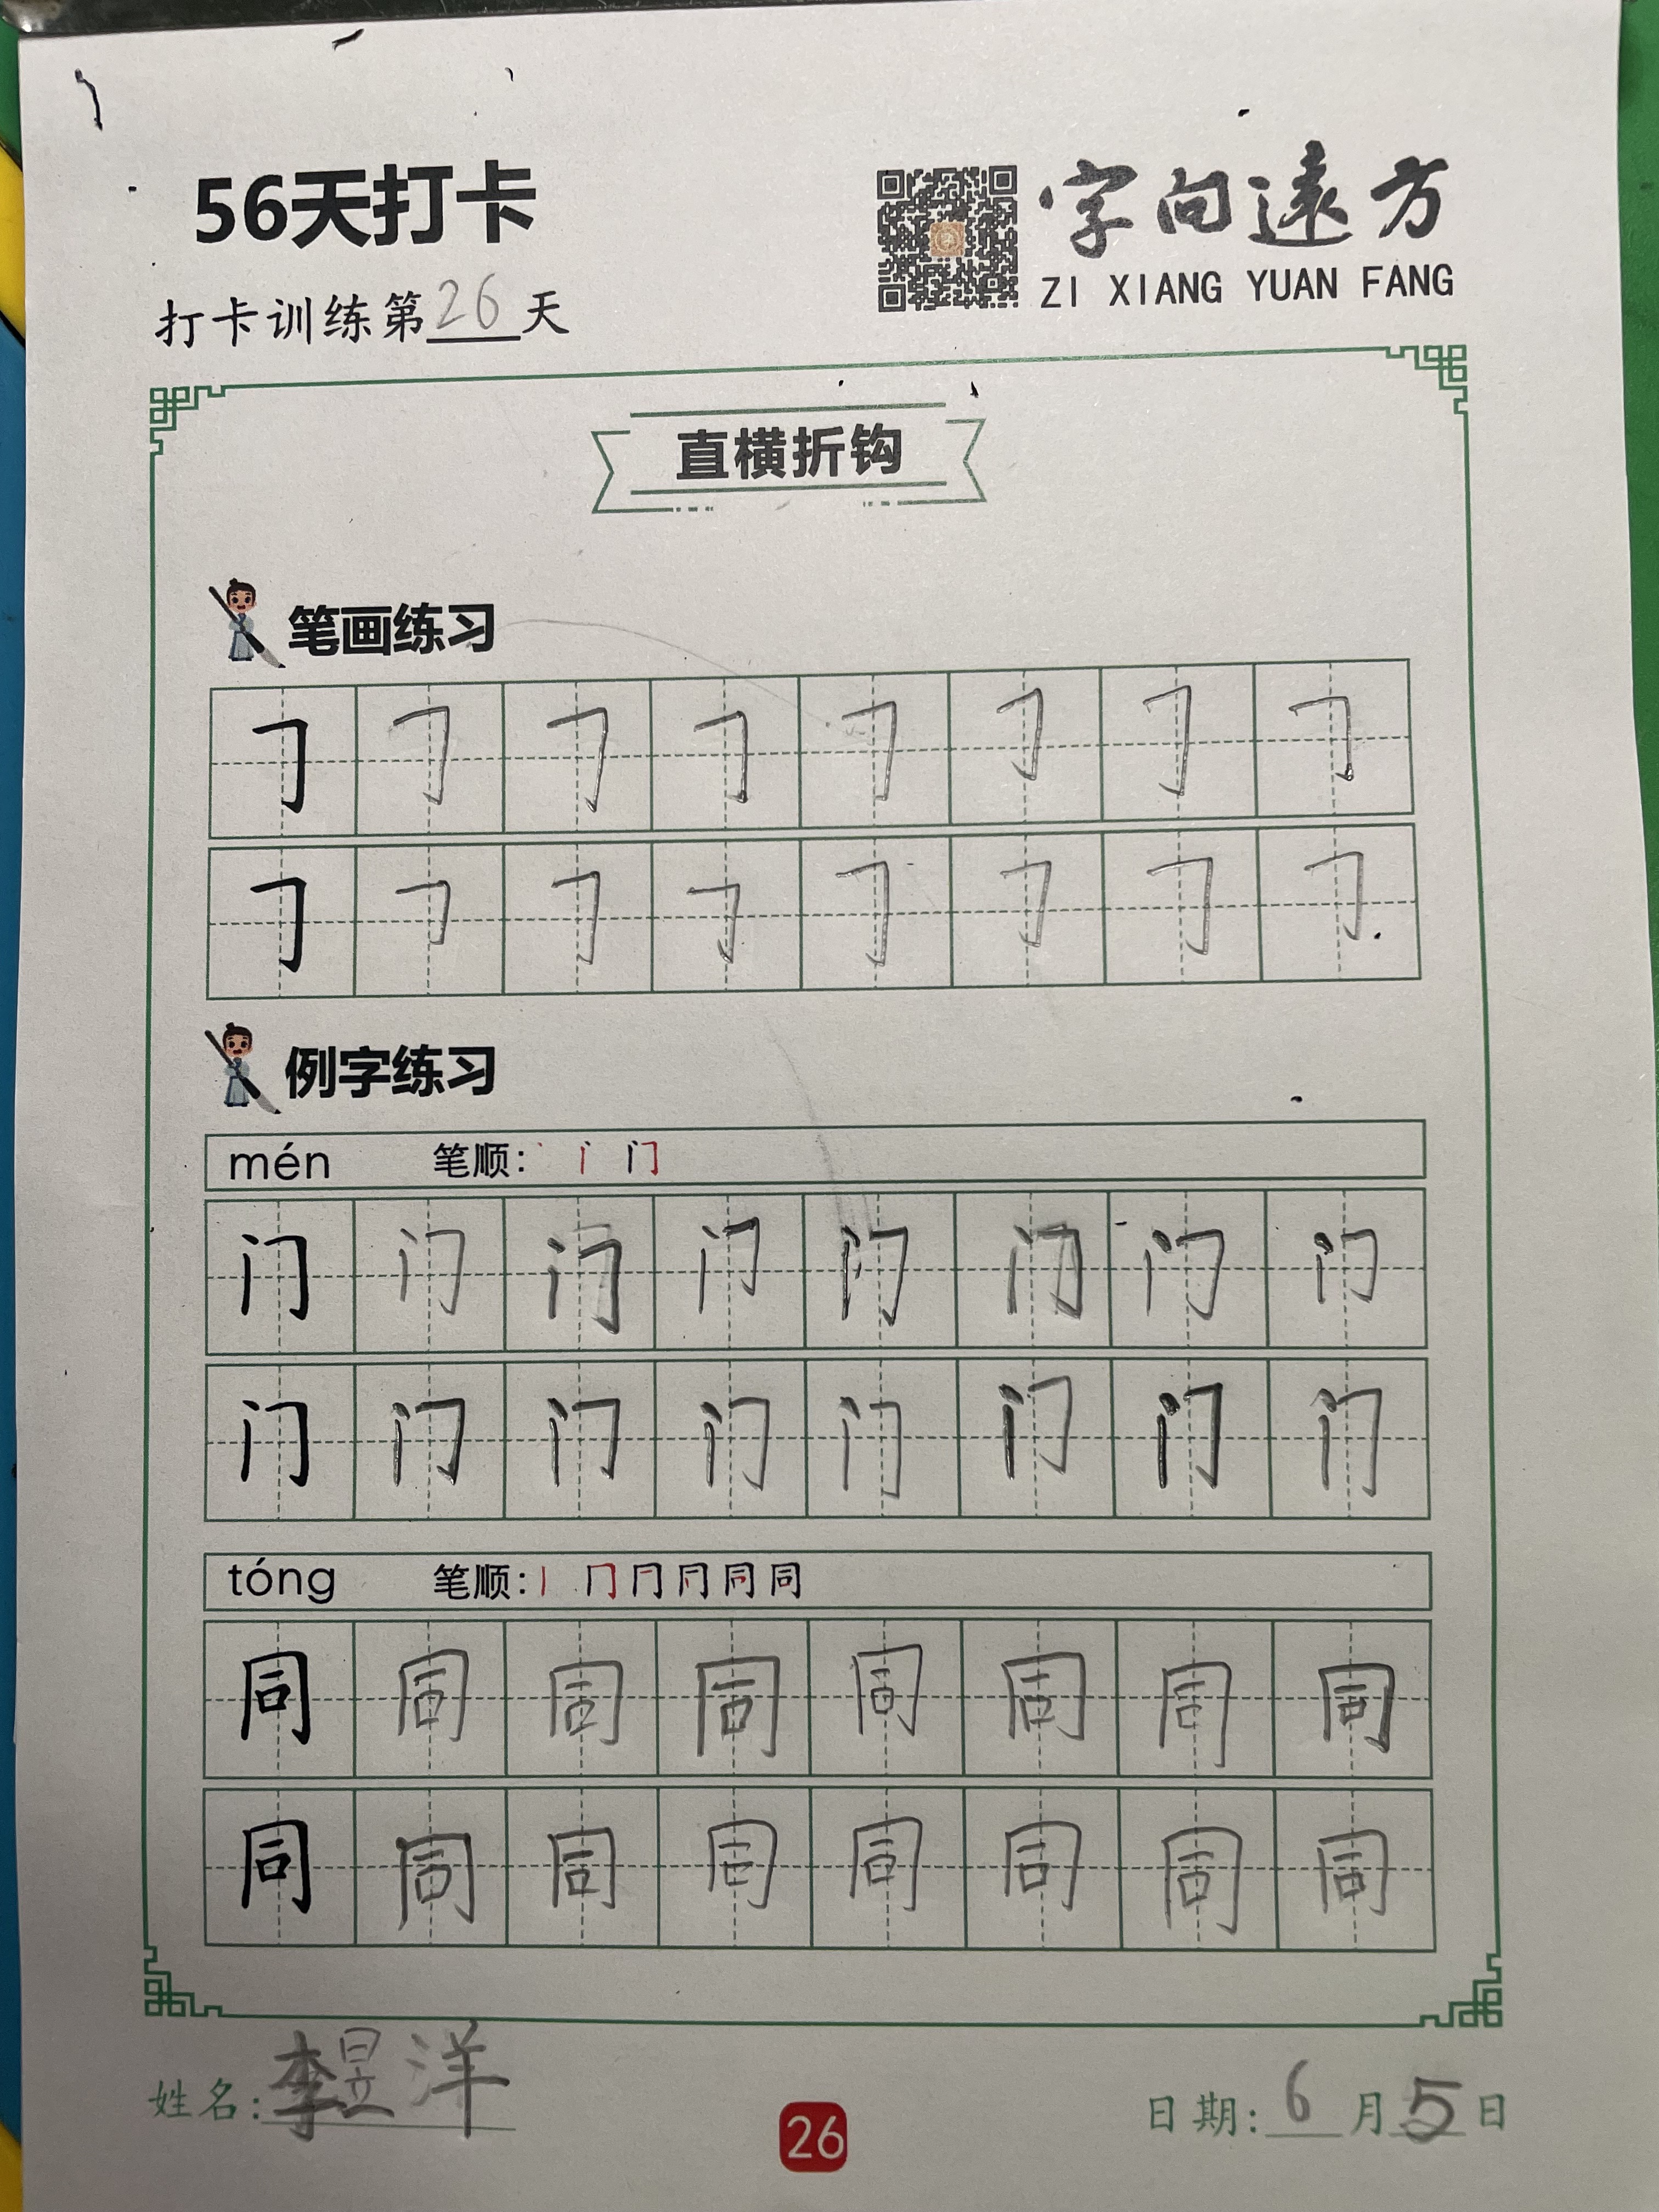 56天打卡
字向遠方
ZI XIANG YUAN FANG
打卡训练第26天
直横折钩
笔画练习
𠃌 𠃌 𠃌 𠃌 𠃌 𠃌 𠃌 𠃌
𠃌 𠃌 𠃌 𠃌 𠃌 𠃌 𠃌 𠃌
例字练习
mén 笔顺: 丶 丨 门
门 门 门 门 门 门 门 门
门 门 门 门 门 门 门 门
tóng 笔顺: 丨 冂 同 同
同 同 同 同 同 同 同 同
同 同 同 同 同 同 同 同
姓名: 李昱洋
26
日期: 6月5日